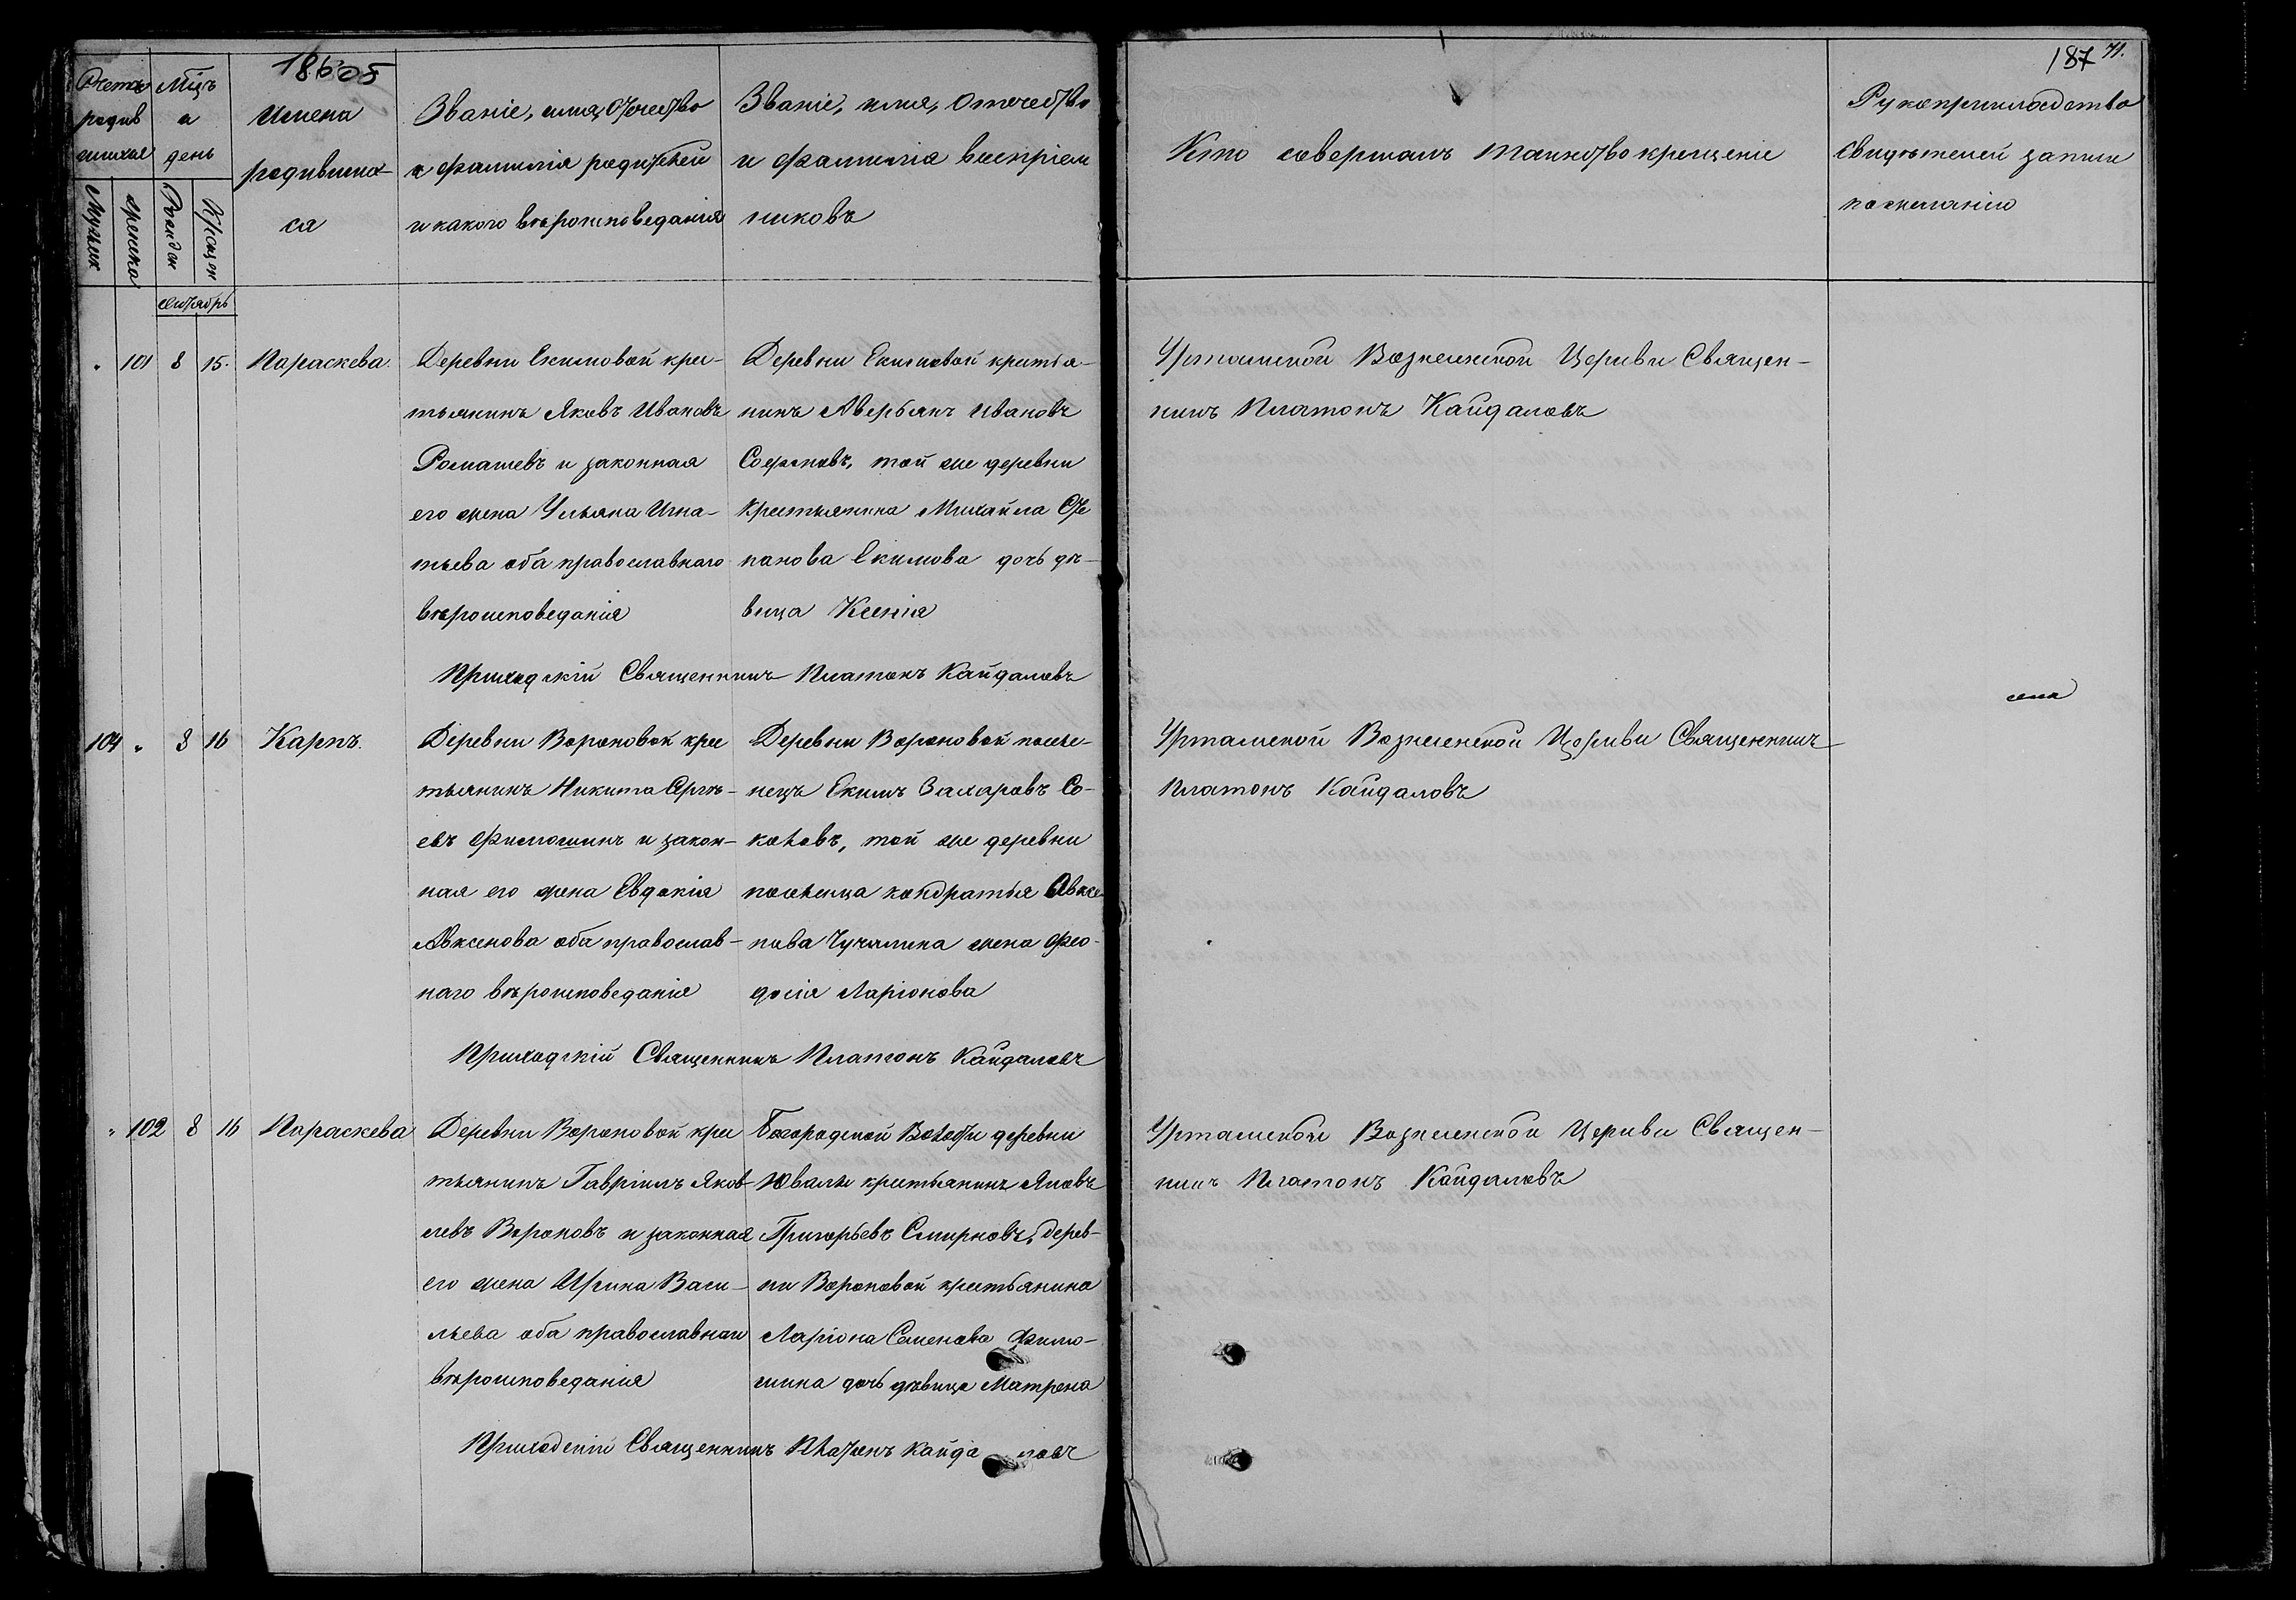 18605
187 71.
Счетъ
родив
шихся
Мцъ
и
день
Имена
родившиа-
ся
Званіе, имя, Отчество
и фамилія родителей
и какого вѣроисповеданія
Званіе, имя, Отчество
и фамилія воспріем
никовъ
Кто совершалъ таинство крещеніе
Рукоприкладство
свидѣтелей записи
по желанію
Мужеск
женска
Рожден
Крещен
октябрь
" 101 8 15. Параскева.
Деревни Екимовой крес-
тьянинъ Яковъ Ивановъ
Ромашевъ и законная
его жена Ульяна Игна-
тьева оба православнаго
вѣроисповеданія
Деревни Екимовой крестья-
нинъ Аверьянъ Ивановъ
Софоновъ, той же деревни
крестьянина Михайла Сте
панова Екимова дочь дѣ-
вица Ксенія
Уртамской Вознесенской Церкви Священ-
никъ Платонъ Кайдаловъ
Приходскій Священникъ Платонъ Кайдаловъ
104 " 8 16 Карпъ.
Деревни Вороновой крес
тьянинъ Никита Сергѣ-
евъ Филошинъ и закон-
ная его жена Евдокія
Авксенова оба православ-
наго вѣроисповеданія
Деревни Вороновой поселе-
нецъ Екимъ Захаровъ Со-
коловъ, той же деревни
поселенца Кондратья Авксе-
нова Чучалина жена Фео-
досія Ларіонова
Уртамской Вознесенской Церкви Священникъ
Платонъ Кайдаловъ
Приходскій Священникъ Платонъ Кайдаловъ
" 102 8 16 Параскева
Деревни Вороновой крес
тьянинъ Гавріилъ Яков-
левъ Вороновъ и законная
его жена Ирина Васи-
льева оба православнаго
вѣроисповеданія
Богородской Волости деревни
Ювалы крестьянинъ Яковъ
Григорьевъ Смирновъ, дерев-
ни Вороновой крестьянина
Ларіона Семенова Филo-
шина дочь дѣвица Матрена
Уртамской Вознесенской Церкви Священ-
никъ Платонъ Кайдаловъ
Приходскій Священникъ Платонъ Кайдаловъ